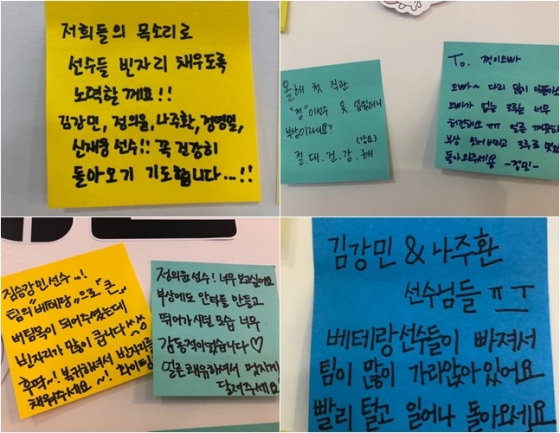 저희들의 목소리로
선수들 빈자리 채우도록
노력할께요!!
김강민, 정의윤, 나주환, 정영일,
신재웅 선수!! 꼭 건강히
돌아오기 기도합니다...!!
올해 첫 직관
"정"이선수 못
부상이라뇨?
(간요)
절.대.건.강.해
To. 쩡이오빠
오빠~ 다리 많이
오빠가 없는 3루는 너무
ㅠㅠ 얼른
부상 3루로
돌아와주세용 -경민-
김강민선수...!
팀의 "베테랑"으로 "큰"
버팀목이 되어주셨는데
빈자리가 많이 큽니다
후딱~! 복귀하셔서 빈자리를
채워주세요~! 화이팅
정의윤선수! 너무 보고싶어요
부상에도 안타를 만들고
뛰어가시던 모습 너무
감동적이었습니다♡
얼른 쾌유하셔서 멋지게
달려주세요
김강민 & 나주환
선수님들 ㅠㅜ
베테랑선수들이 빠져서
팀이 많이 가라앉아있어요
빨리 털고 일어나 돌아오세요